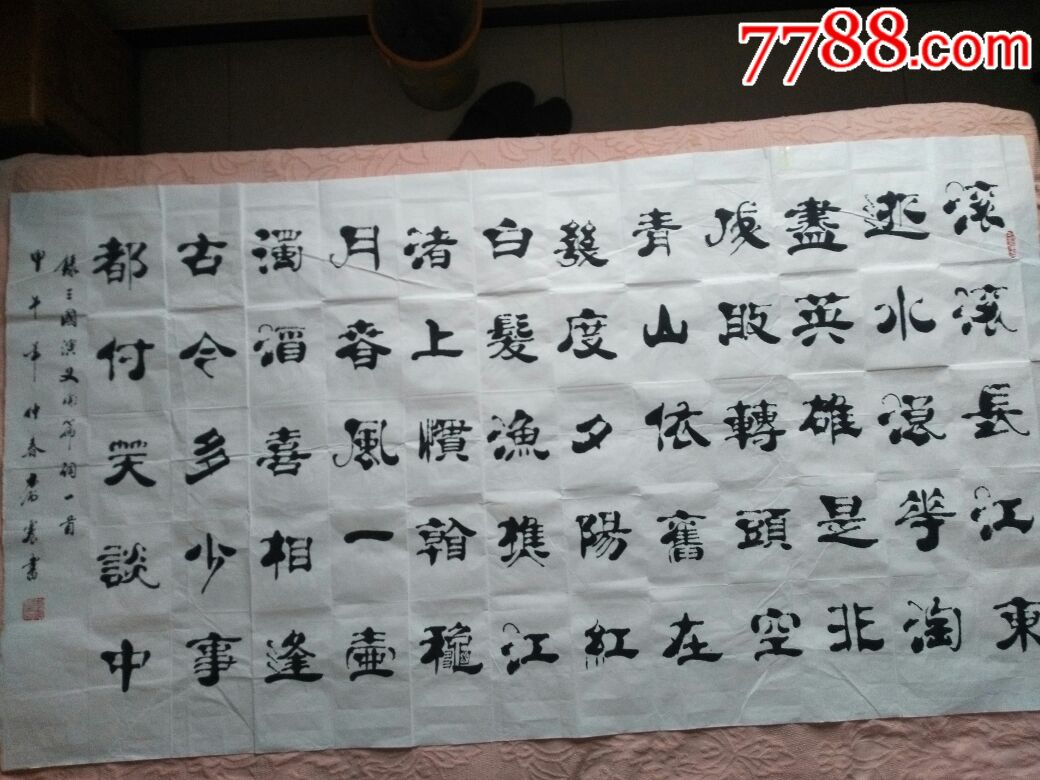 滚滚長江東
逝水浪花淘
盡英雄是非
成敗轉頭空
青山依舊在
幾度夕陽紅
白髮漁樵江
渚上慣看龝
月春風一壺
濁酒喜相逢
古今多少事
都付笑談中
錄三國演义開篇詞一首
甲午年仲春書
7788.com